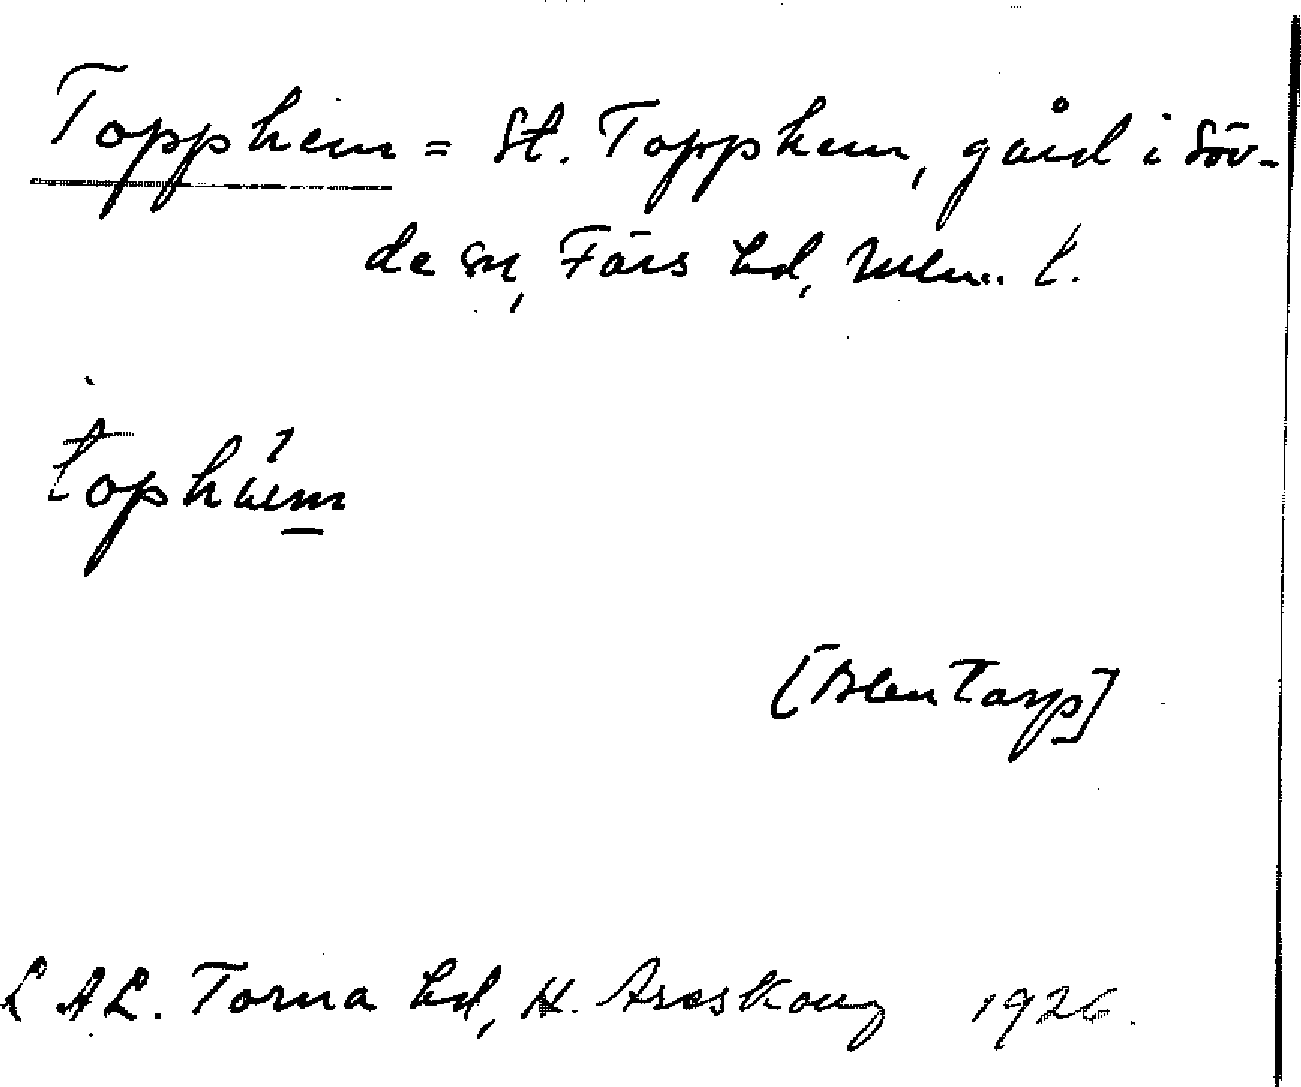 Topphem = St. Topphem, gård i Söv-
de sn, Färs hd, Mlm. l.
tophäem
[Blentarp]
L A L. Torna hd, H. Areskoug 1926.